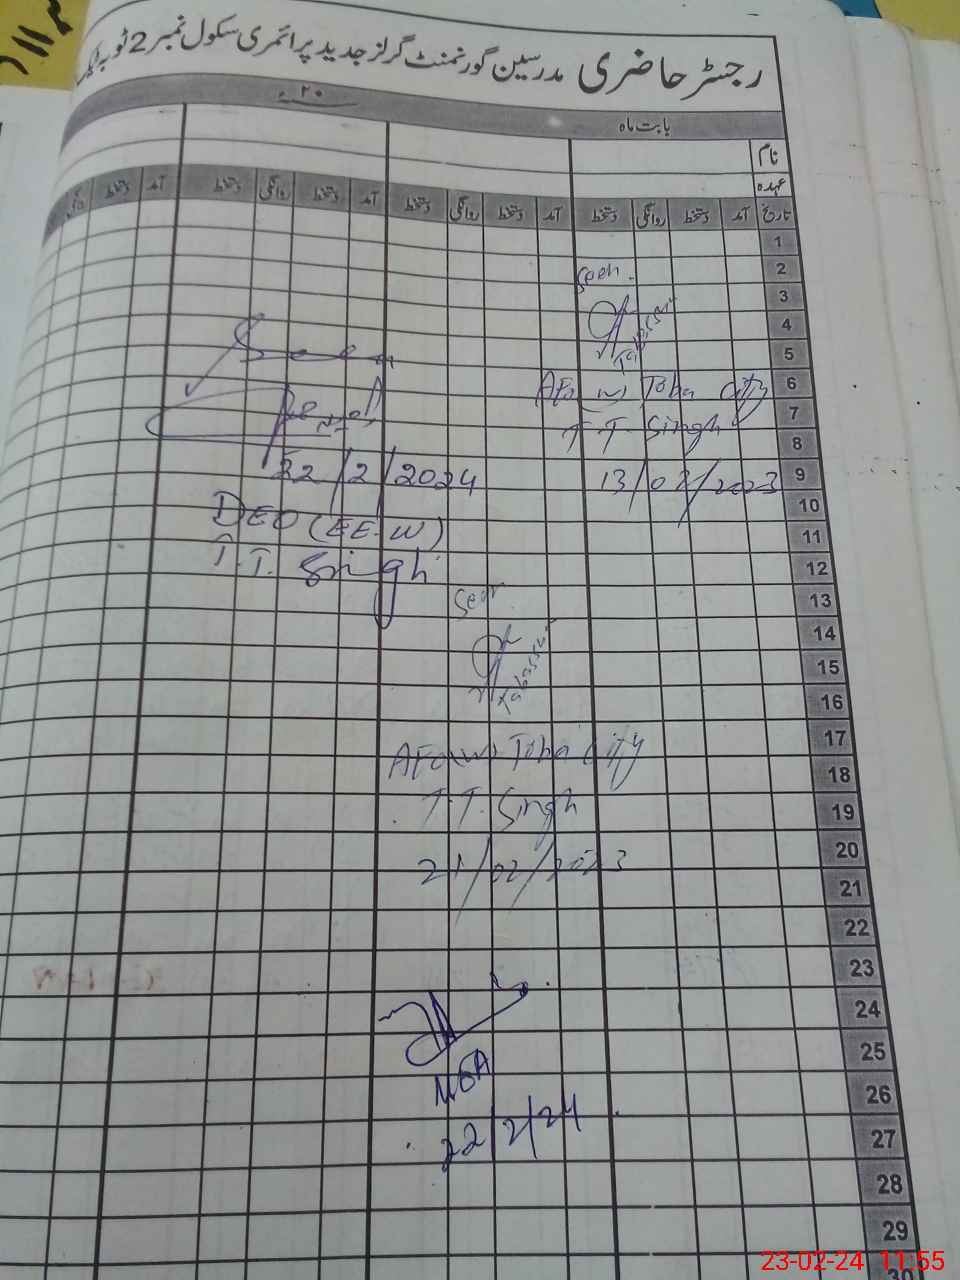 رجسٹر حاضری مدرسین گورنمنٹ گرلز جدید پرائمری سکول نمبر 2 ٹوبہ
۲۰ء
بابت ماہ
نام
عہدہ
تاریخ آمد دستخط روانگی دستخط آمد دستخط روانگی دستخط آمد دستخط روانگی دستخط آمد دستخط روانگی
1
2
3
4
5
6
7
8
9
10
11
12
13
14
15
16
17
18
19
20
21
22
23
24
25
26
27
28
29
30
Seen
Tabassum
AEO(W) Toba City
T.T. Singh
13/02/2023
Seen
22/2/2024
DEO (EE-W)
T.T. Singh
Seen
Tabassum
AEO(W) Toba City
T.T. Singh
21/02/2023
MEA
22/2/24
23-02-24 11:55